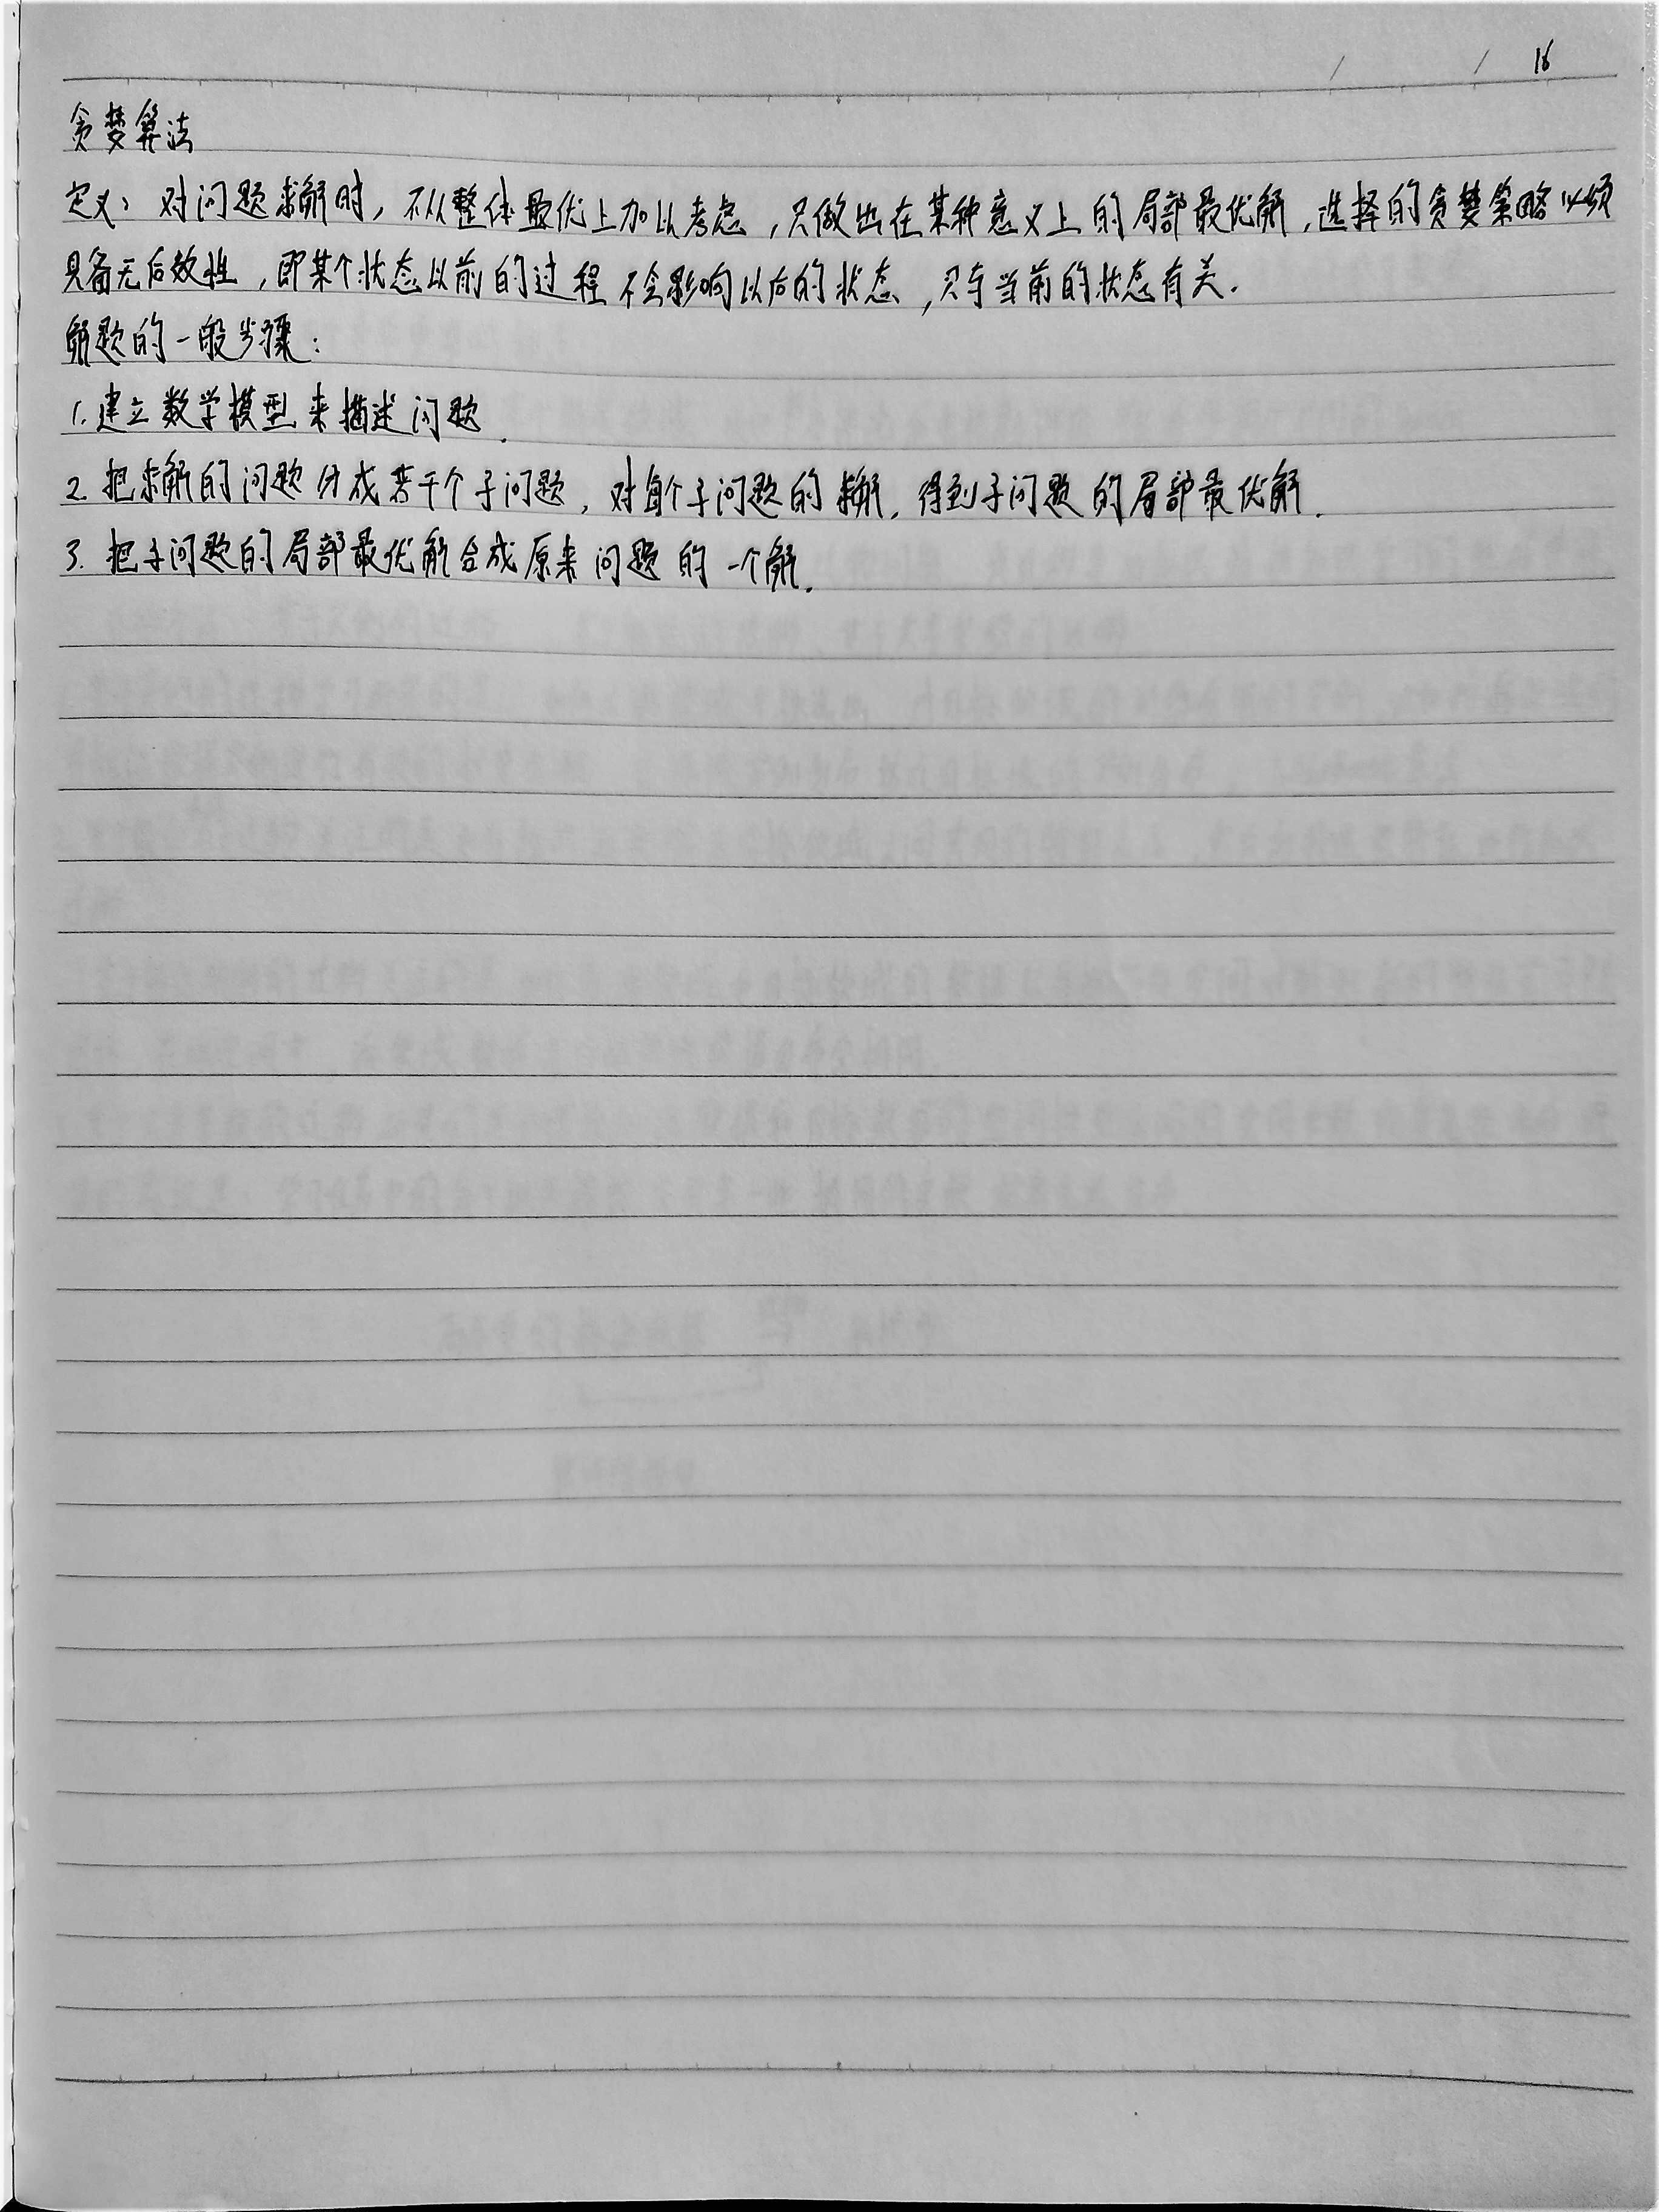 16
贪婪算法
定义：对问题求解时，不从整体最优上加以考虑，只做出在某种意义上的局部最优解，选择的贪婪策略必须
具备无后效性，即某个状态以前的过程不会影响以后的状态，只与当前的状态有关．
解题的一般步骤：
1.建立数学模型来描述问题．
2.把求解的问题分成若干个子问题，对每个子问题的求解，得到子问题的局部最优解．
3.把子问题的局部最优解合成原来问题的一个解．